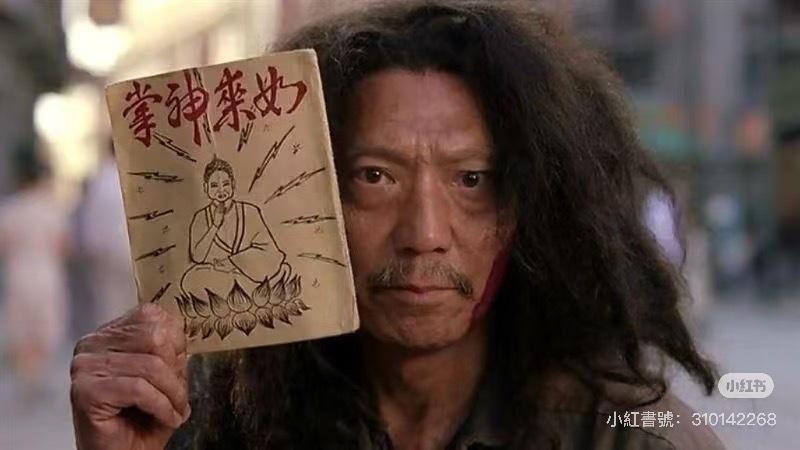 如来神掌
小红书
小紅書號：310142268